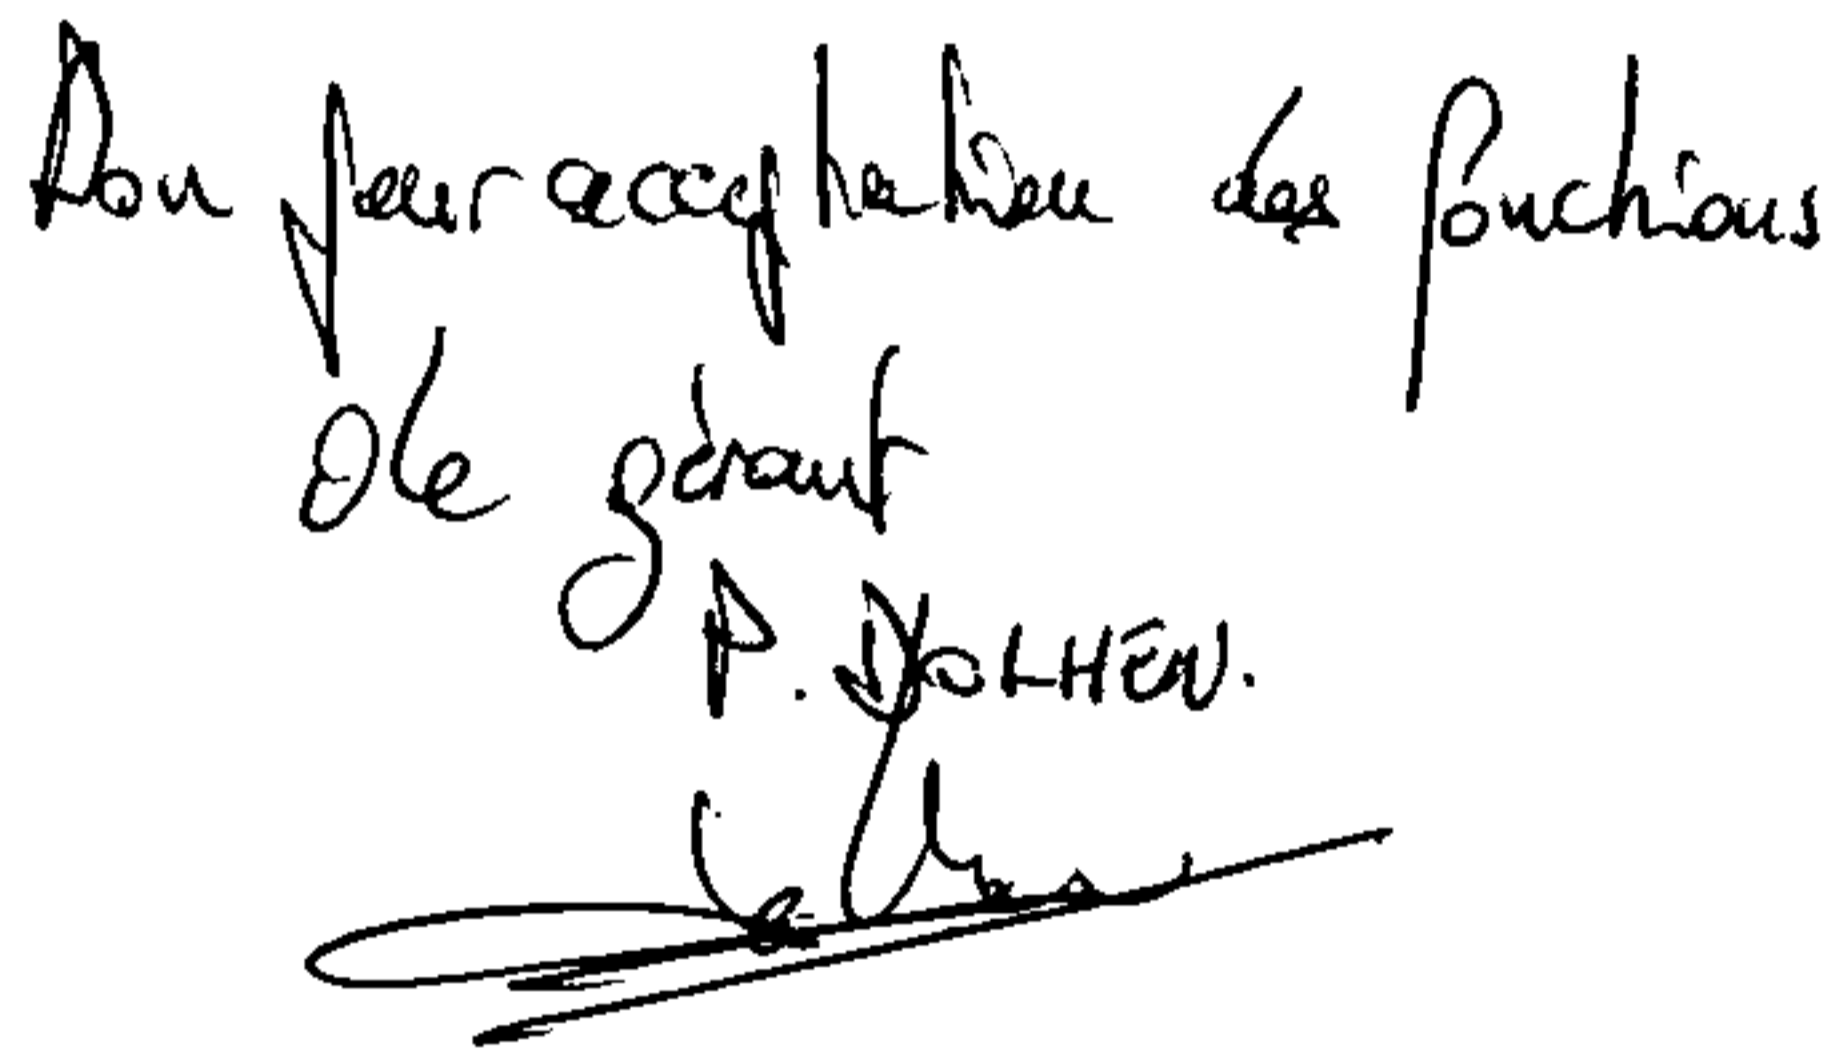 Bon pour acceptation des fonctions
de gérant
P. DOLHEN.